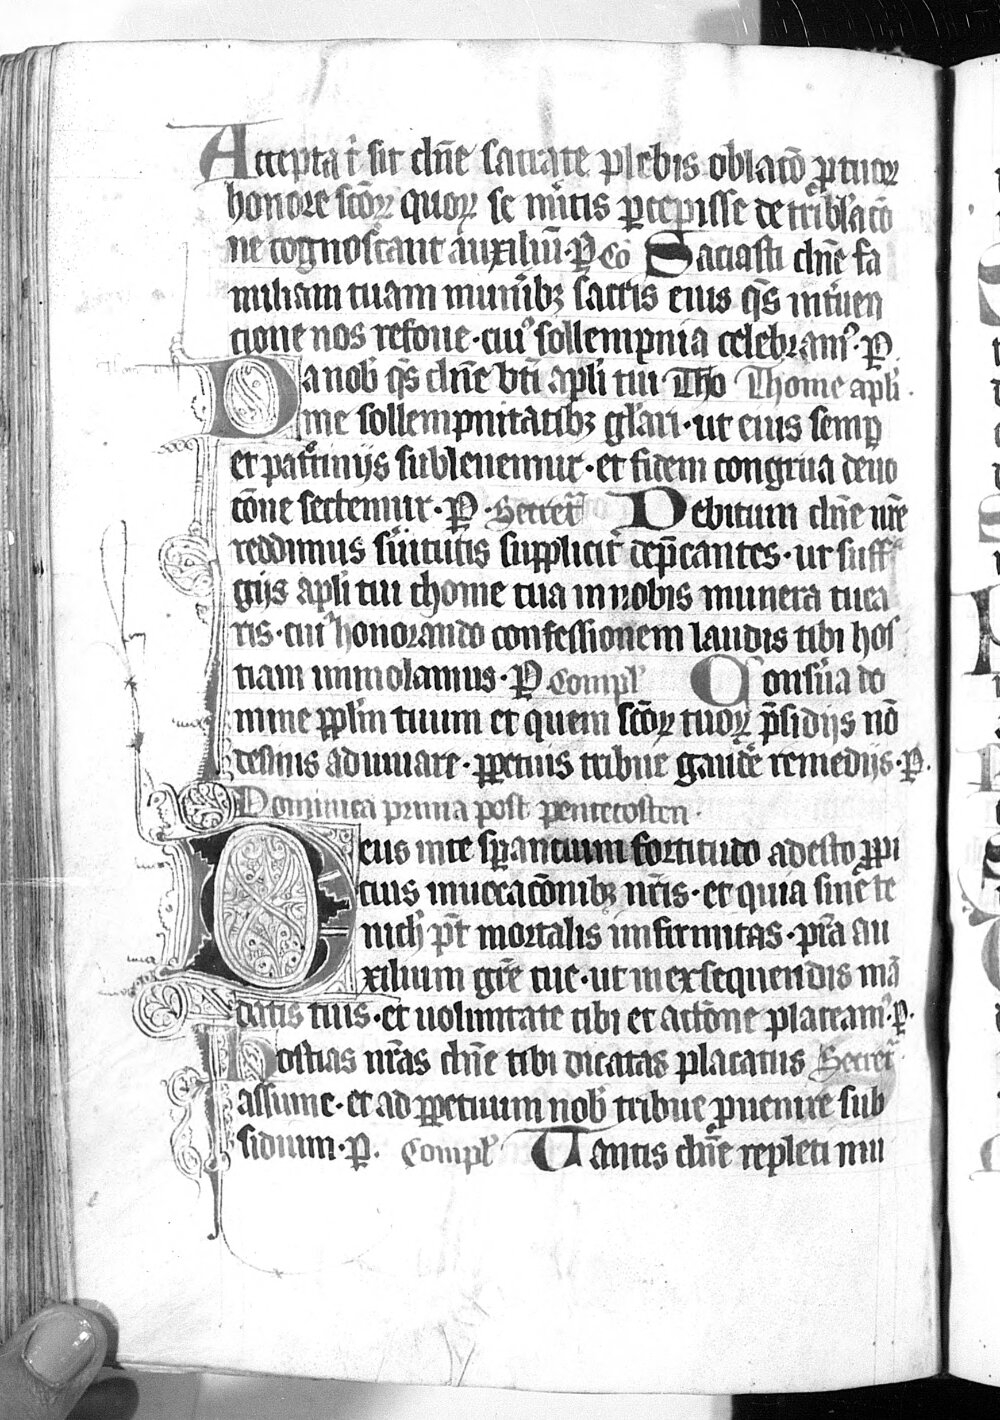 Accepta t̄ sit dn̄e sacrate plebis oblacō ꝓ tuoꝝ
honore scōꝝ quoꝝ se mitis ꝑcepisse de tribl'acō
ne cognoscant auxiliū · P̱ Cō Saciasti dn̄e fa
miliam tuam munibꝫ sacris eius qs̄ int̄uen
cione nos refoue · cui⁹ sollempnia celebram⁹ · P̱
Da nob̄ qs̄ dn̄e bt̄i apl̄i tui Tho Thome apl̄i ·
me sollempnitatibꝫ gl̄ari · ut eius semꝑ
et pat̄cinijs subleuemur · et fidem congrua deuo
cōne sectemur · P̱ · Secret̄ Debitum dn̄e nr̄e
reddimus s̄uitutis supplicit̄ dep̄cantes · ut suff̄
gijs apl̄i tui thome tua in nobis munera tuea
ris · cui⁹ honorando confessionem laudis tibi hos
tiam immolamus · P̱ Compl̄ Cons̄ua do
mine ppl̄m tuum et quem scōꝝ tuoꝝ p̄sidijs nō
desinis adiuuare · ꝑpetuis tribue gaudē remedijs · P̱ ·
Dominica prima post pentecosten ·
Deus in te sꝑantium fortitudo adesto ꝓpi
cius inuocacōnibꝫ nr̄is · et quia sine te
nich̄ pt̄ mortalis infirmitas · pr̄a au
xilium gr̄e tue · ut in exsequendis mā
datis tuis · et uoluntate tibi et actōne placeam⁹ · P̱ ·
Hostias nr̄as dn̄e tibi dicatas placatus Secret̄
assume · et ad ꝑpetuum nob̄ tribue ꝓuenire sub
sidium · P̱ · Compl̄ Tantis dn̄e repleti mu